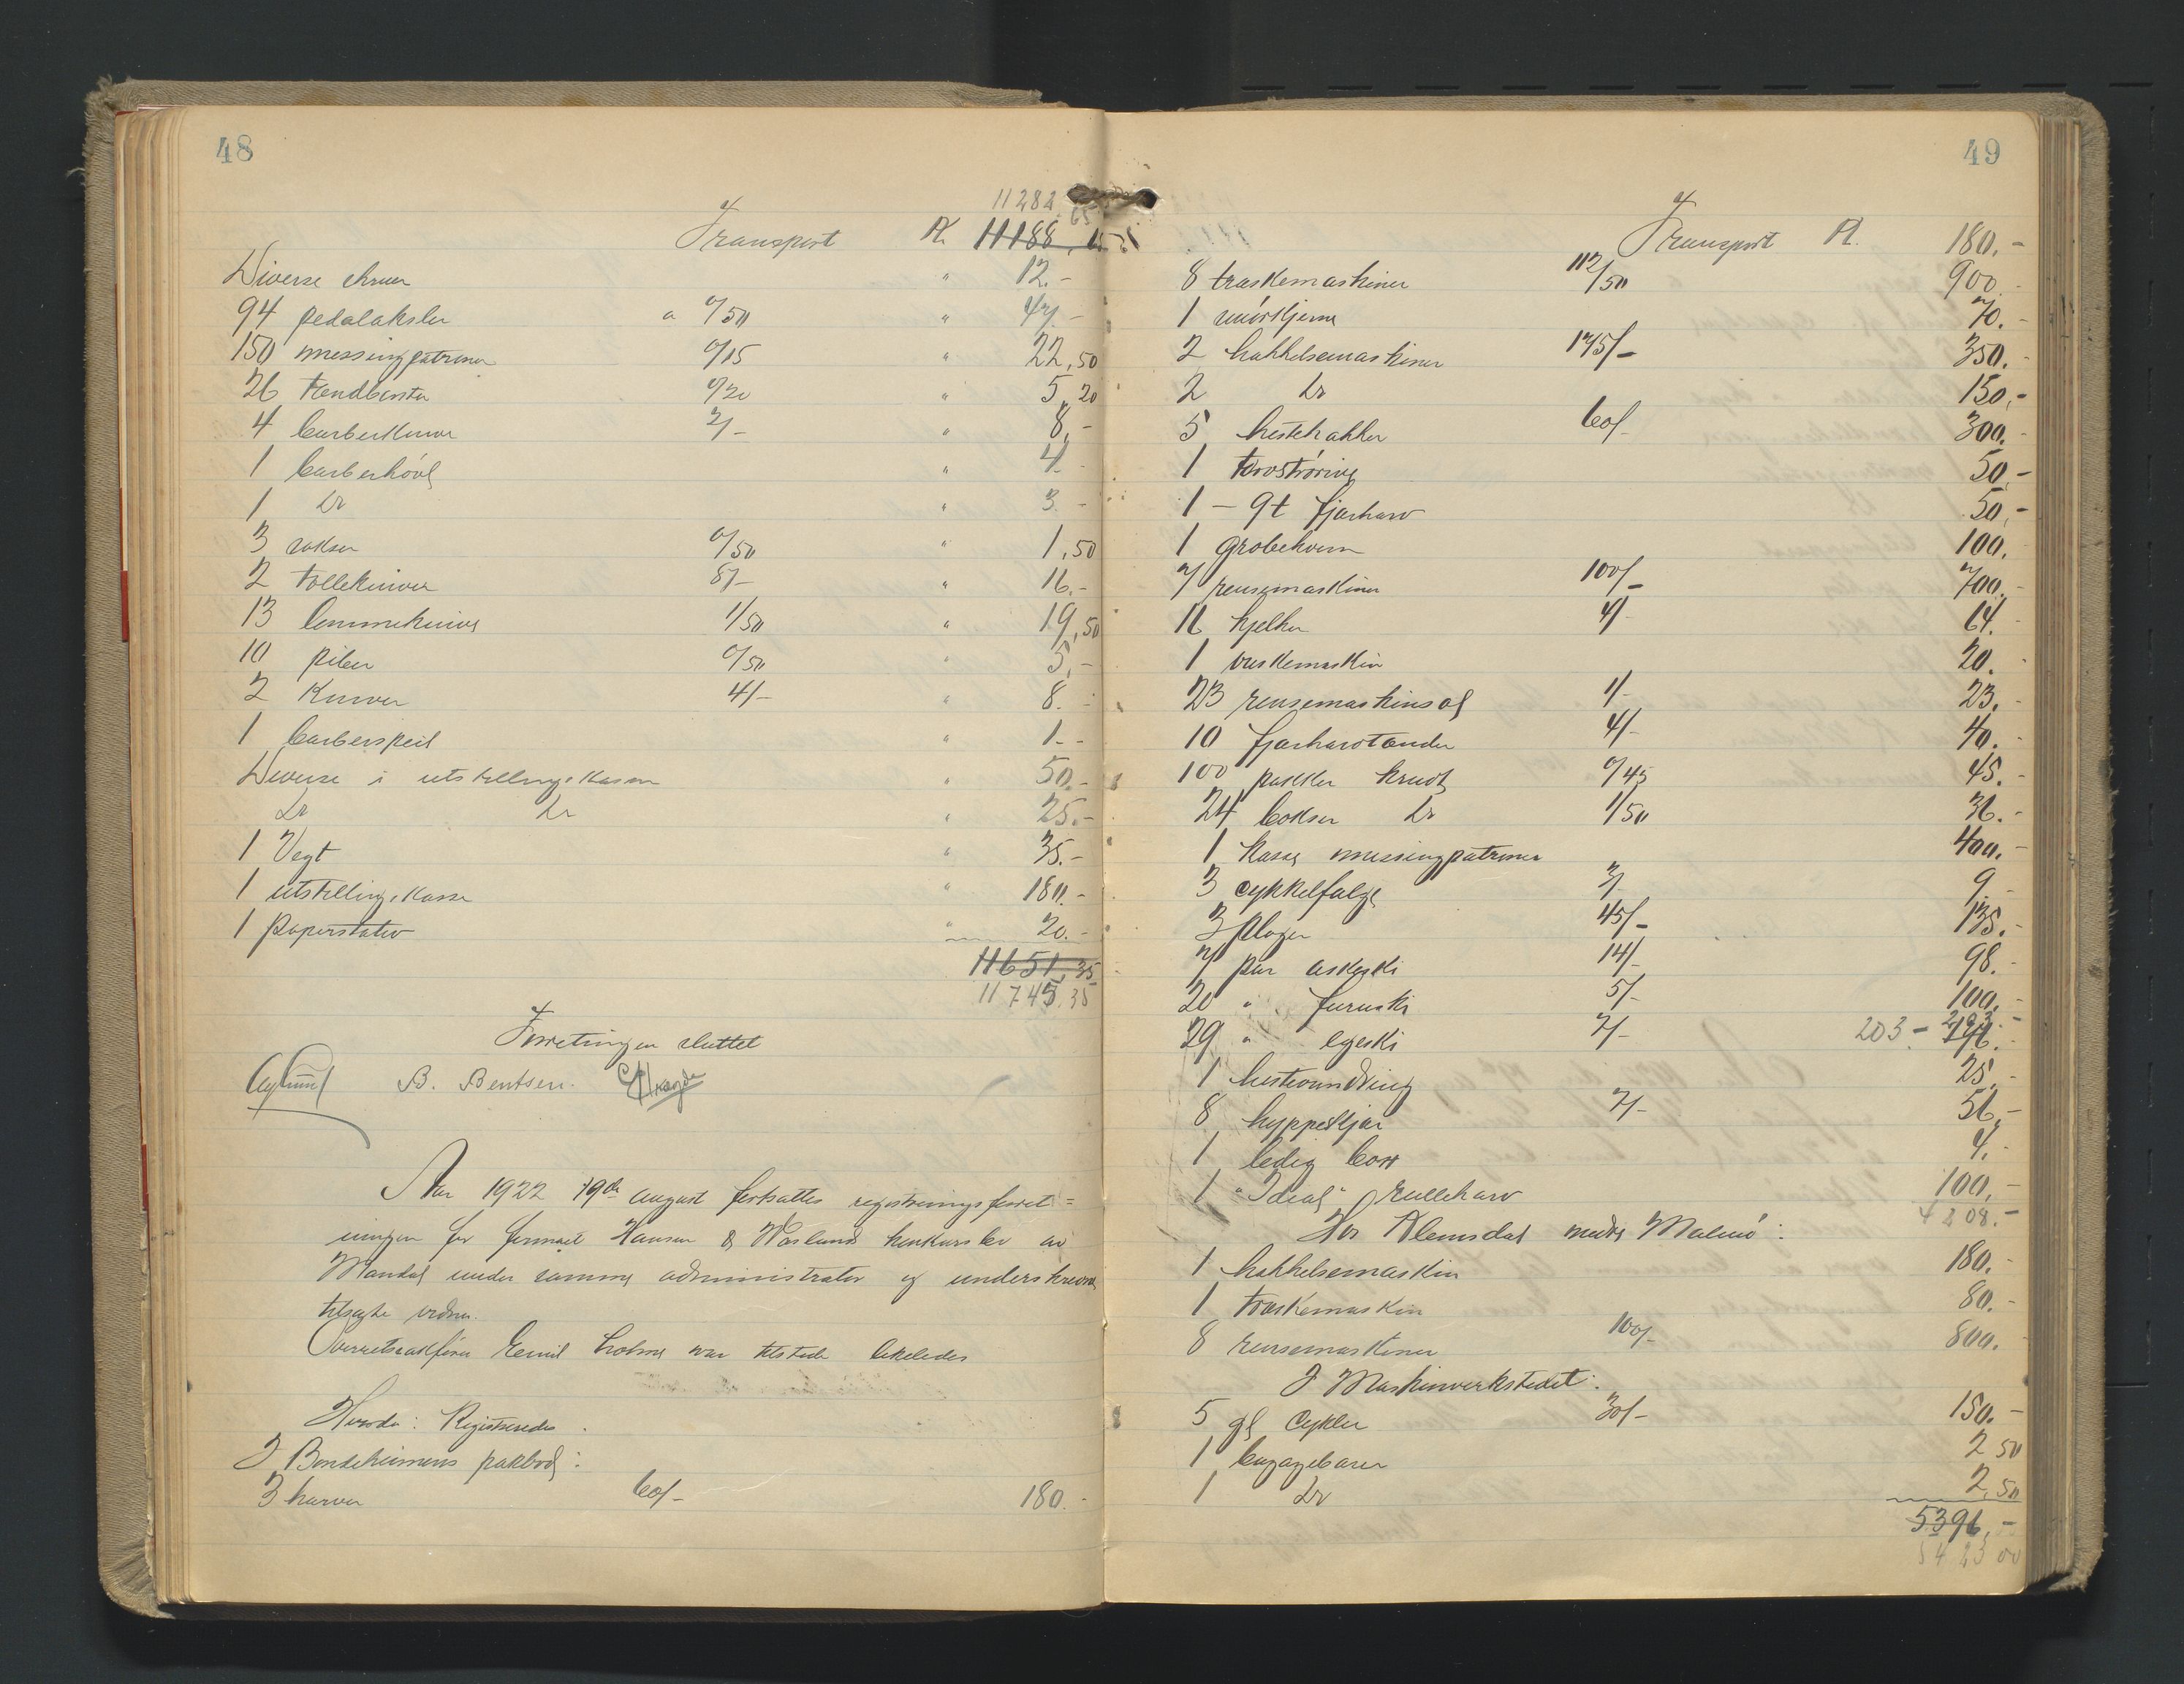 48
11282.65
Transport Kr. 11188,65
Diverse skruer " 12.-
94 pedalaksler a 0/50 " 47.-
150 messingpatroner 0/15 " 22,50
26 tandbørster 0/20 " 5,20
4 barberkniver 2/- " 8,-
1 barberhøvl " 4.-
1 Do " 3.-
3 sakser 0/50 " 1,50
2 tollekniver 8/- " 16.-
13 lommekniver 1/50 " 19,50
10 piber 0/50 " 5,-
2 Kurver 4/- " 8.-
1 barberspeil " 1.-
Diverse i utstillingskassen " 50.-
Do Do " 25.-
1 Vegt " 35.-
1 utstillingskasse " 180.-
1 papirstativ " 20.-
11651,35
11745,35
Forretningen sluttet
B. Bentsen.
Aar 1922 19de august fortsattes registreringsforret=
ningen for firmaet Hansen & Høslund konkursbo av
Mandal under samme administrator og underskrevne
tilsagte vidner.
Overretssakfører Emil Holme var tilstede likeledes
Herunder: Registreredes
I Bondeheimens pakbod:
3 harver 60/- 180.-
49
Transport Kr. 180.-
8 træskemaskiner 112/50 900.-
1 smørkjerne 70.-
2 hakkelsemaskiner 175/- 350.-
2 Do 150,-
5 hestehakker 60/- 300.-
1 torvstrøriver 50,-
1 - 9t fjærharv 50,-
1 grøbekvern 100.-
7 rensemaskiner 100/- 700.-
16 kjelker 4/- 64.-
1 vaskemaskin 20.-
23 rensemaskinsol 1/- 23.-
10 fjærharvtænder 4/- 40.-
100 pakker krudt 0/45 45.-
24 bokser Do 1/50 36.-
1 kasse messingpatroner 400.-
3 cykkelfælge 3/- 9.-
3 Ploger 45/- 135.-
7 par askeski 14/- 98.-
20 " furuski 5/- 100.-
29 " egeski 7/- 203.- 203.-
1 hestevandring 25.-
8 hyppeskjær 7/- 56,-
1 ledig bor 4.-
1 "Ideal" rulleharv 100,-
4208.-
Hos Klemsdal nedre Malmø:
1 hakkelsemaskin 180.-
1 træskemaskin 80.-
8 rensemaskiner 100/- 800.-
I Maskinverkstedet:
5 gl Cykler 30/- 150.-
1 bagagebærer 2 50
1 Do 2,50
5396,-
5423 00